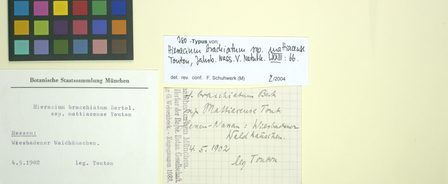 Iso-Typus von:
Hieracium brachiatum ssp. mattiacense
Touton, Jahrb. Nass. V. Naturk. : 66.
det. rev. conf. F. Schuhwerk (M) 2/2004
Botanische Staatssammlung München
Hieracium brachiatum Bertol.
ssp. mattiacense Touton
Hessen:
Wiesbadener Waldhäuschen.
4.5.1902 leg. Touton
brachiatum Bert
ssp Mattiacense Tout
Hessen-Nassau: Wiesbadener
Waldhäuschen.
4. 5. 1902
leg Touton